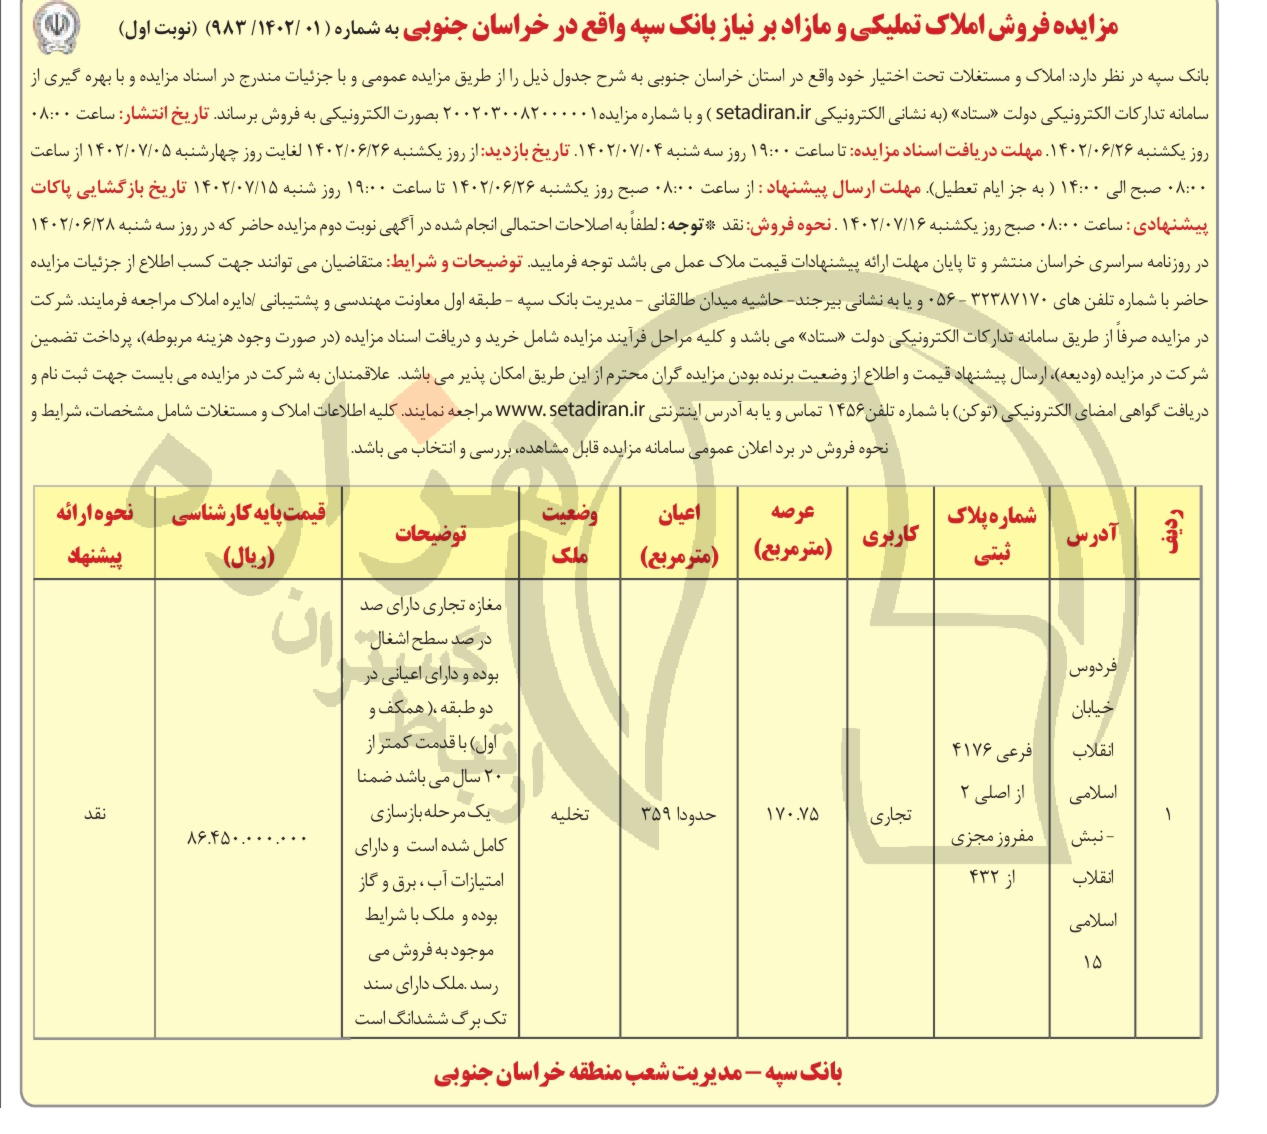 مزایده فروش املاک تملیکی و مازاد بر نیاز بانک سپه واقع در خراسان جنوبی به شماره (۰۱ /۱۴۰۲/ ۹۸۳) (نوبت اول)
بانک سپه در نظر دارد: املاک و مستغلات تحت اختیار خود واقع در استان خراسان جنوبی به شرح جدول ذیل را از طریق مزایده عمومی و با جزئیات مندرج در اسناد مزایده و با بهره گیری از
سامانه تدارکات الکترونیکی دولت «ستاد» (به نشانی الکترونیکی setadiran.ir ) و با شماره مزایده ۲۰۰۲۰۳۰۰۸۲۰۰۰۰۰۱ بصورت الکترونیکی به فروش برساند. تاریخ انتشار: ساعت ۰۸:۰۰
روز یکشنبه ۱۴۰۲/۰۶/۲۶. مهلت دریافت اسناد مزایده: تا ساعت ۱۹:۰۰ روز سه شنبه ۱۴۰۲/۰۷/۰۴. تاریخ بازدید: از روز یکشنبه ۱۴۰۲/۰۶/۲۶ لغایت روز چهارشنبه ۱۴۰۲/۰۷/۰۵ از ساعت
۰۸:۰۰ صبح الی ۱۴:۰۰ ( به جز ایام تعطیل). مهلت ارسال پیشنهاد : از ساعت ۰۸:۰۰ صبح روز یکشنبه ۱۴۰۲/۰۶/۲۶ تا ساعت ۱۹:۰۰ روز شنبه ۱۴۰۲/۰۷/۱۵ تاریخ بازگشایی پاکات
پیشنهادی : ساعت ۰۸:۰۰ صبح روز یکشنبه ۱۴۰۲/۰۷/۱۶ . نحوه فروش: نقد *توجه : لطفاً به اصلاحات احتمالی انجام شده در آگهی نوبت دوم مزایده حاضر که در روز سه شنبه ۱۴۰۲/۰۶/۲۸
در روزنامه سراسری خراسان منتشر و تا پایان مهلت ارائه پیشنهادات قیمت ملاک عمل می باشد توجه فرمایید. توضیحات و شرایط: متقاضیان می توانند جهت کسب اطلاع از جزئیات مزایده
حاضر با شماره تلفن های ۳۲۳۸۷۱۷۰ - ۰۵۶ و یا به نشانی بیرجند- حاشیه میدان طالقانی - مدیریت بانک سپه - طبقه اول معاونت مهندسی و پشتیبانی /دایره املاک مراجعه فرمایند. شرکت
در مزایده صرفاً از طریق سامانه تدارکات الکترونیکی دولت «ستاد» می باشد و کلیه مراحل فرآیند مزایده شامل خرید و دریافت اسناد مزایده (در صورت وجود هزینه مربوطه)، پرداخت تضمین
شرکت در مزایده (ودیعه)، ارسال پیشنهاد قیمت و اطلاع از وضعیت برنده بودن مزایده گران محترم از این طریق امکان پذیر می باشد. علاقمندان به شرکت در مزایده می بایست جهت ثبت نام و
دریافت گواهی امضای الکترونیکی (توکن) با شماره تلفن ۱۴۵۶ تماس و یا به آدرس اینترنتی www.setadiran.ir مراجعه نمایند. کلیه اطلاعات املاک و مستغلات شامل مشخصات، شرایط و
نحوه فروش در برد اعلان عمومی سامانه مزایده قابل مشاهده، بررسی و انتخاب می باشد.
ردیف
آدرس
شماره پلاک
ثبتی
کاربری
عرصه
(مترمربع)
اعیان
(مترمربع)
وضعیت
ملک
توضیحات
قیمت پایه کارشناسی
(ریال)
نحوه ارائه
پیشنهاد
۱
فردوس
خیابان
انقلاب
اسلامی
-نبش
انقلاب
اسلامی
۱۵
فرعی ۴۱۷۶
از اصلی ۲
مفروز مجزی
از ۴۳۲
تجاری
۱۷۰.۷۵
حدودا ۳۵۹
تخلیه
مغازه تجاری دارای صد
در صد سطح اشغال
بوده و دارای اعیانی در
دو طبقه ،( همکف و
اول) با قدمت کمتر از
۲۰ سال می باشد ضمنا
یک مرحله بازسازی
کامل شده است و دارای
امتیازات آب ، برق و گاز
بوده و ملک با شرایط
موجود به فروش می
رسد .ملک دارای سند
تک برگ ششدانگ است
۸۶.۴۵۰.۰۰۰.۰۰۰
نقد
بانک سپه – مدیریت شعب منطقه خراسان جنوبی
هزاره
گستران
ارتباط